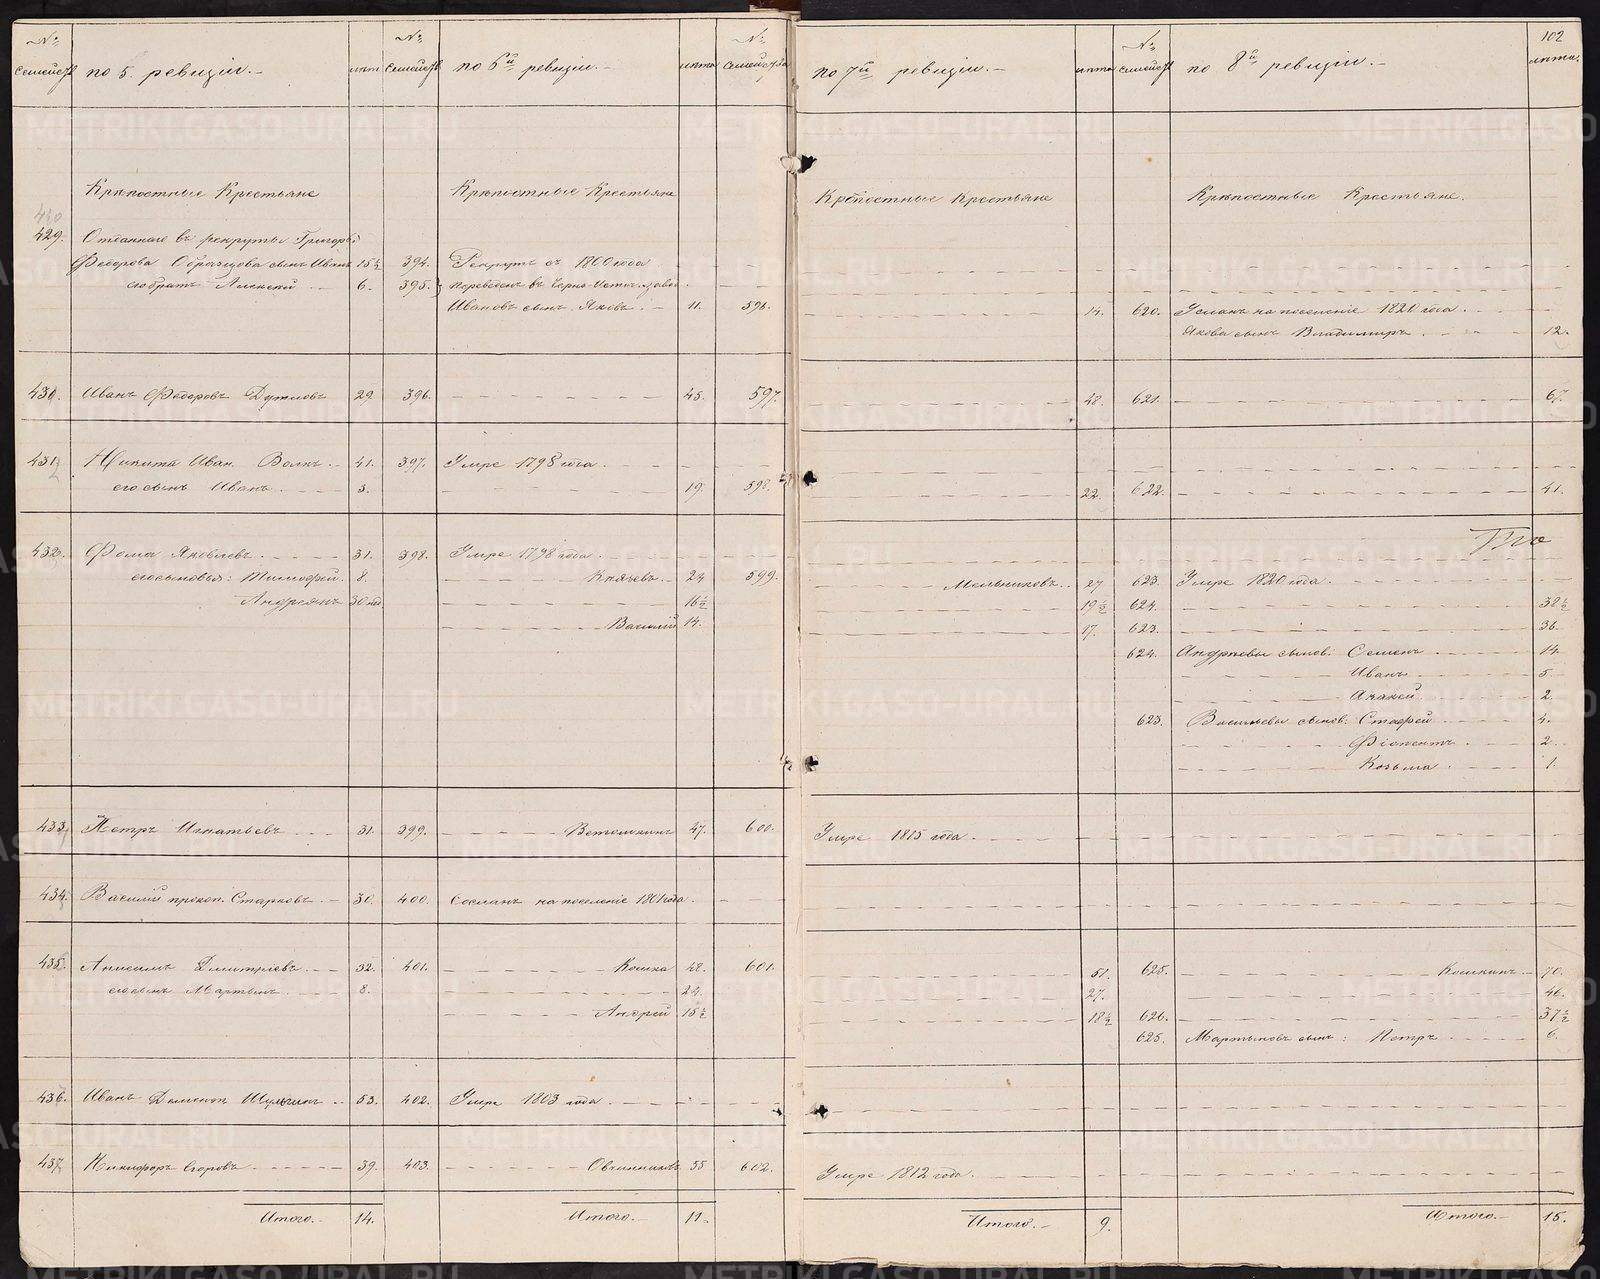 № семейств по 5. ревизіи.- лѣта № семейств по 6й ревизіи.- лѣта № семейства по 7й ревизіи.- лѣта № семейств по 8й ревизіи.- 102 лѣта.
Крѣпостные Крестьяне Крѣпостные Крестьяне Крѣпостные Крестьяне Крѣпостные Крестьяне.
429. Отданнаго въ рекруты Григорья
Федорова Образцова сынъ Иванъ 15½ 394. Рекрутъ съ 1800 года
его братъ Алексѣй 6. 395. переведенъ въ Черно-Источ. завод.
Ивановъ сынъ Яковъ 11. 596. 14. 620. Усланъ на поселеніе 1820 года
Якова сынъ Владимиръ 12.
430. Иванъ Федоровъ Дутловъ 29. 396. 45. 597. 48. 621. 67.
431. Никита Иван. Волкъ 41. 397. Умре 1798 года
его сынъ Иванъ 3. 19. 598. 22. 622. 41.
432. Фома Яковлевъ 31. 398. Умре 1798 года
его сыновья: Тимофей 8. Князевъ 24 599. Мельниковъ 27 623. Умре 1820 года
Андреянъ 30 нед 16½ 19½ 624. 38½
Василий 14. 17. 623. 36.
624. Андреевы сынов: Семенъ 14.
Иванъ 5.
Акакей 2.
623. Васильевы сынов: Стафей 4.
Фіопентъ 2.
Козьма 1.
433. Петръ Игнатьевъ 31. 399. Ветошкинъ 47. 600. Умре 1815 года
434. Василий прокоп. Старковъ 30. 400. Сосланъ на поселеніе 1801 года
435. Анисимъ Дмитріевъ 32. 401. Кошка 48. 601. 51. 625. Кошкинъ 70.
его сынъ Мартынъ 8. 24. 27. 46.
Андрей 15½ 18½ 626. 37½
625. Мартыновъ сынъ: Петръ 6.
436. Иванъ Демент. Шульгинъ 53. 402. Умре 1803 года
437. Никифоръ Егоровъ 39. 403. Овчинниковъ 55 602. Умре 1812 года
Итого.- 14. Итого.- 11. Итого.- 9. Итого.- 15.
METRIKI.GASO-URAL.RU